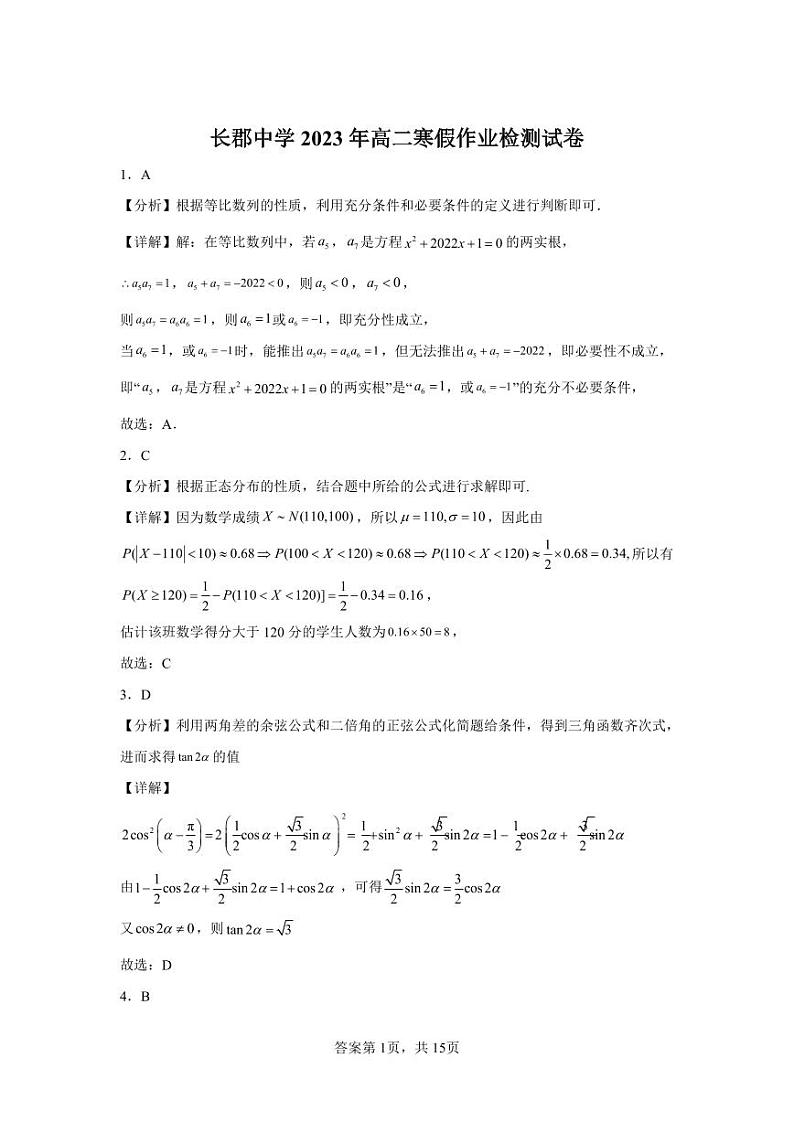 长郡中学 2023 年高二寒假作业检测试卷
1．A
【分析】根据等比数列的性质，利用充分条件和必要条件的定义进行判断即可．
【详解】解：在等比数列中，若 a₅，a₇是方程 x² + 2022x + 1 = 0 的两实根，
∴a₅a₇ = 1，a₅ + a₇ = −2022 < 0，则 a₅ < 0，a₇ < 0，
则 a₅a₇ = a₆a₆ = 1，则 a₆ = 1 或 a₆ = −1，即充分性成立，
当 a₆ = 1，或 a₆ = −1 时，能推出 a₅a₇ = a₆a₆ = 1，但无法推出 a₅ + a₇ = −2022，即必要性不成立，
即“a₅，a₇是方程 x² + 2022x + 1 = 0 的两实根”是“a₆ = 1，或 a₆ = −1”的充分不必要条件，
故选：A．
2．C
【分析】根据正态分布的性质，结合题中所给的公式进行求解即可.
【详解】因为数学成绩 X ~ N(110,100)，所以 μ = 110, σ = 10，因此由
P(|X −110| < 10) ≈ 0.68 ⇒ P(100 < X < 120) ≈ 0.68 ⇒ P(110 < X < 120) ≈ 1/2 × 0.68 = 0.34, 所以有
P(X ≥ 120) = 1/2 − P(110 < X < 120)] = 1/2 − 0.34 = 0.16，
估计该班数学得分大于 120 分的学生人数为 0.16 × 50 = 8，
故选：C
3．D
【分析】利用两角差的余弦公式和二倍角的正弦公式化简题给条件，得到三角函数齐次式，
进而求得 tan 2α 的值
【详解】
2cos²(α − π/3) = 2(1/2 cos α + √3/2 sin α)² = 1/2 + sin² α + √3/2 sin 2α = 1 − 1/2 cos 2α + √3/2 sin 2α
由 1 − 1/2 cos 2α + √3/2 sin 2α = 1 + cos 2α ，可得 √3/2 sin 2α = 3/2 cos 2α
又 cos 2α ≠ 0，则 tan 2α = √3
故选：D
4．B
答案第 1页，共 15页